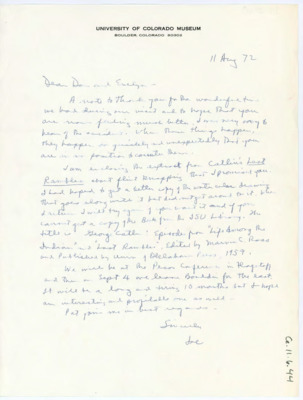 UNIVERSITY OF COLORADO MUSEUM
BOULDER, COLORADO 80302
11 Aug 72
Dear Don and Evelyn -
A note to thank you for the wonderful time
we had during our visit and to hope that you
are now feeling much better. I was very sorry to
hear of the accident. When these things happen,
they happen so quickly and unexpectedly that you
are in no position to
I am enclosing the extract from Catlin's Last
Rambles about flint knapping that I promised you
I had hoped to get a better copy of the
that goes along with it but did not get around to it. When
I return I will try again if you want it and if you
cannot get a copy of the book from the ISU library. The
title is "George Catlin: Episodes from Life Among the
Indians and Last Rambles", Edited by Marvin C. Ross
and Published by Univ of Oklahoma Press, 1959.
We will be at the Pecos Conference in Flagstaff
and then on Sept we leave Boulder for the East.
It will be a long and busy 10 months but I hope
an interesting and profitable one as well.
Pat joins me in best regards.
Sincerely
Joe